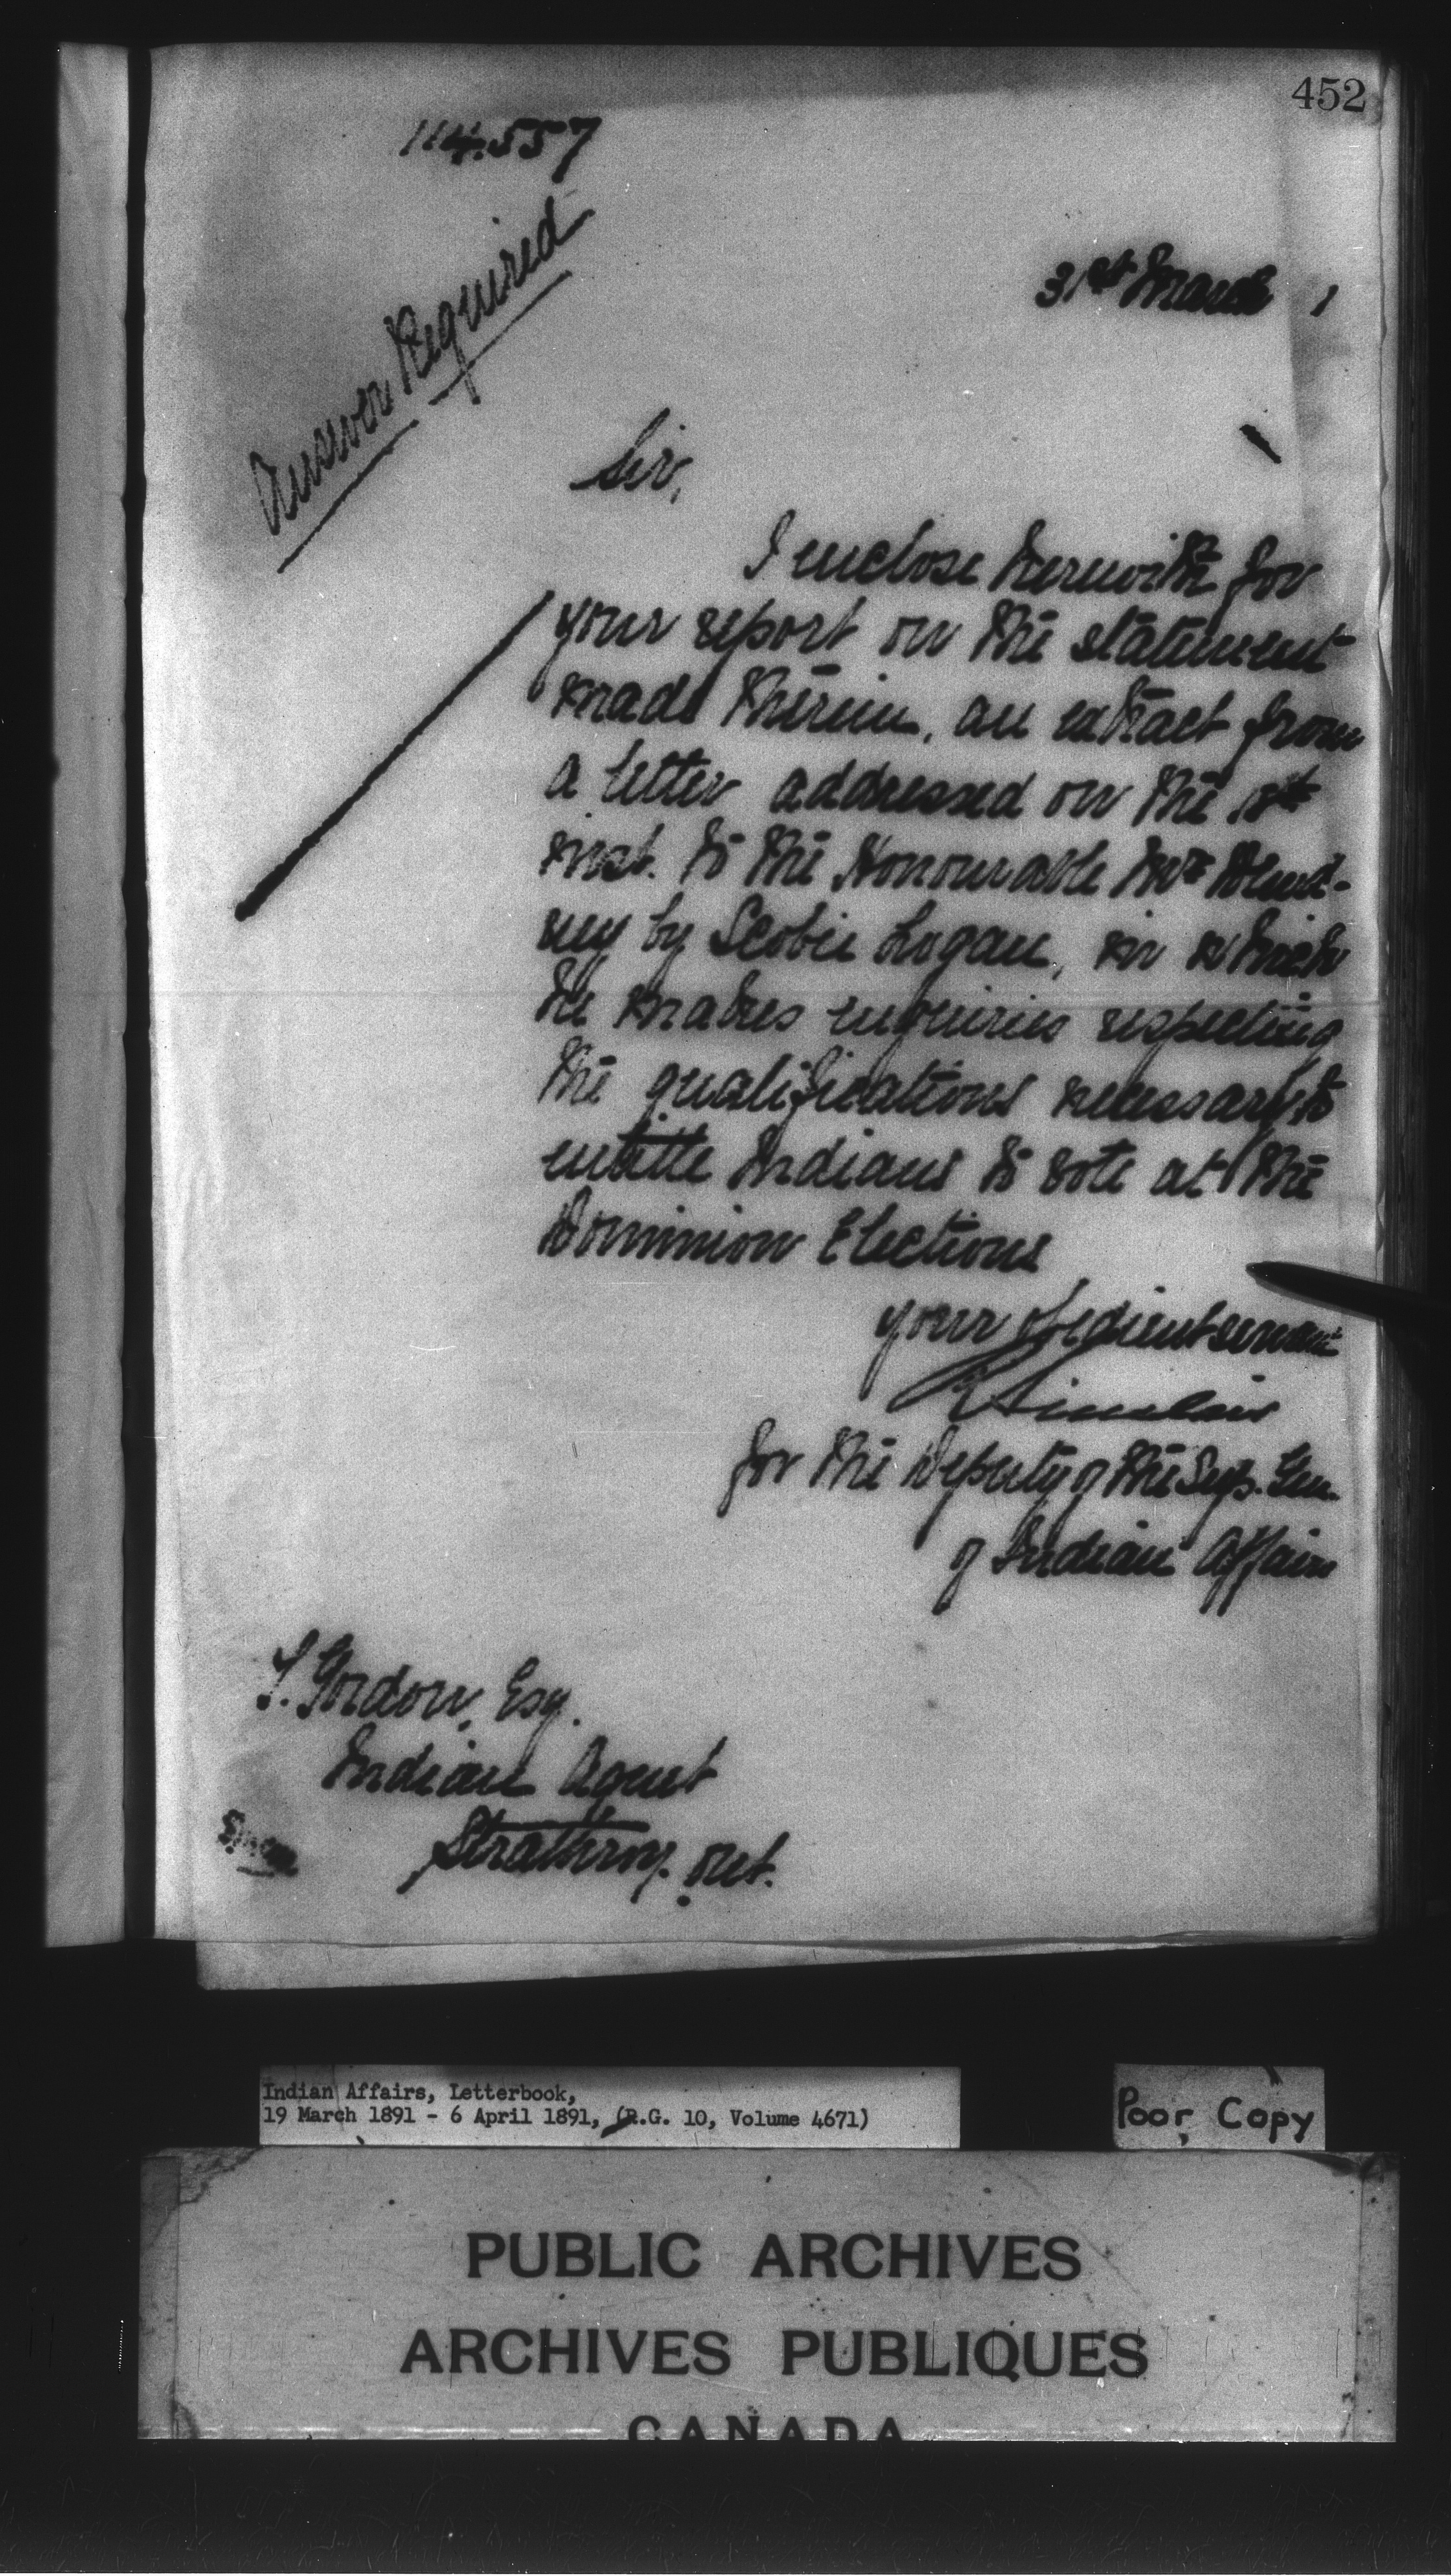 452
114.557
Answer Required
31st March 1
Sir,
I enclose herewith for
your report on the statement
made therein, an extract from
a letter addressed on the
inst. to the Honourable Mr Dewd-
ney by Scobie Logan, in which
he makes enquiries respecting
the qualifications necessary to
entitle Indians to vote at the
Dominion Elections
Your obedient servant
R Sinclair
for the Deputy of the Sup. Gen.
of Indian Affairs
T. Gordon, Esq.
Indian Agent
Strathroy. Ont.
Indian Affairs, Letterbook,
19 March 1891 - 6 April 1891, (R.G. 10, Volume 4671)
Poor Copy
PUBLIC ARCHIVES
ARCHIVES PUBLIQUES
CANADA